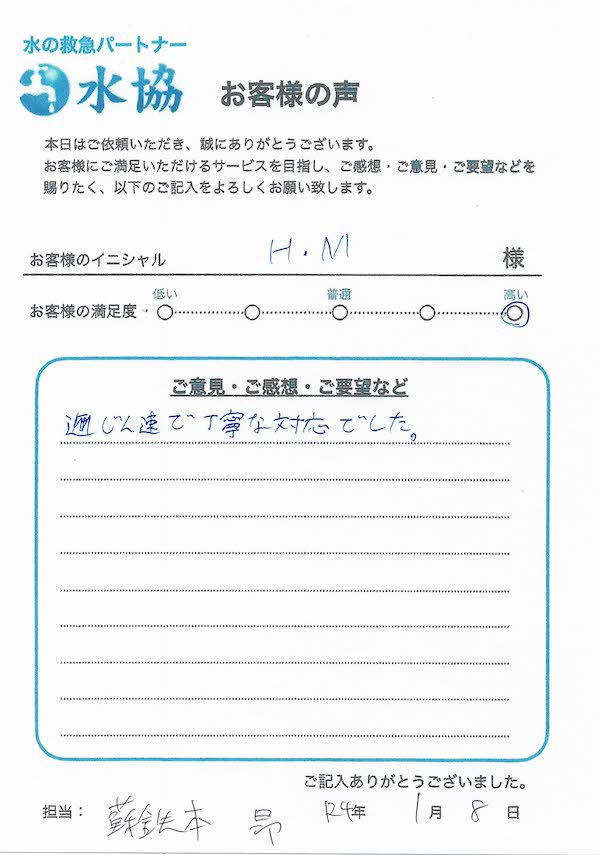 水の救急パートナー
水協 お客様の声
本日はご依頼いただき、誠にありがとうございます。
お客様にご満足いただけるサービスを目指し、ご感想・ご意見・ご要望などを
賜りたく、以下のご記入をよろしくお願い致します。
お客様のイニシャル H.M 様
低い 普通 高い
お客様の満足度
ご意見・ご感想・ご要望など
じん速で丁寧な対応でした。
ご記入ありがとうございました。
担当: 蘇鉄本 昴 R4年 1月 8日